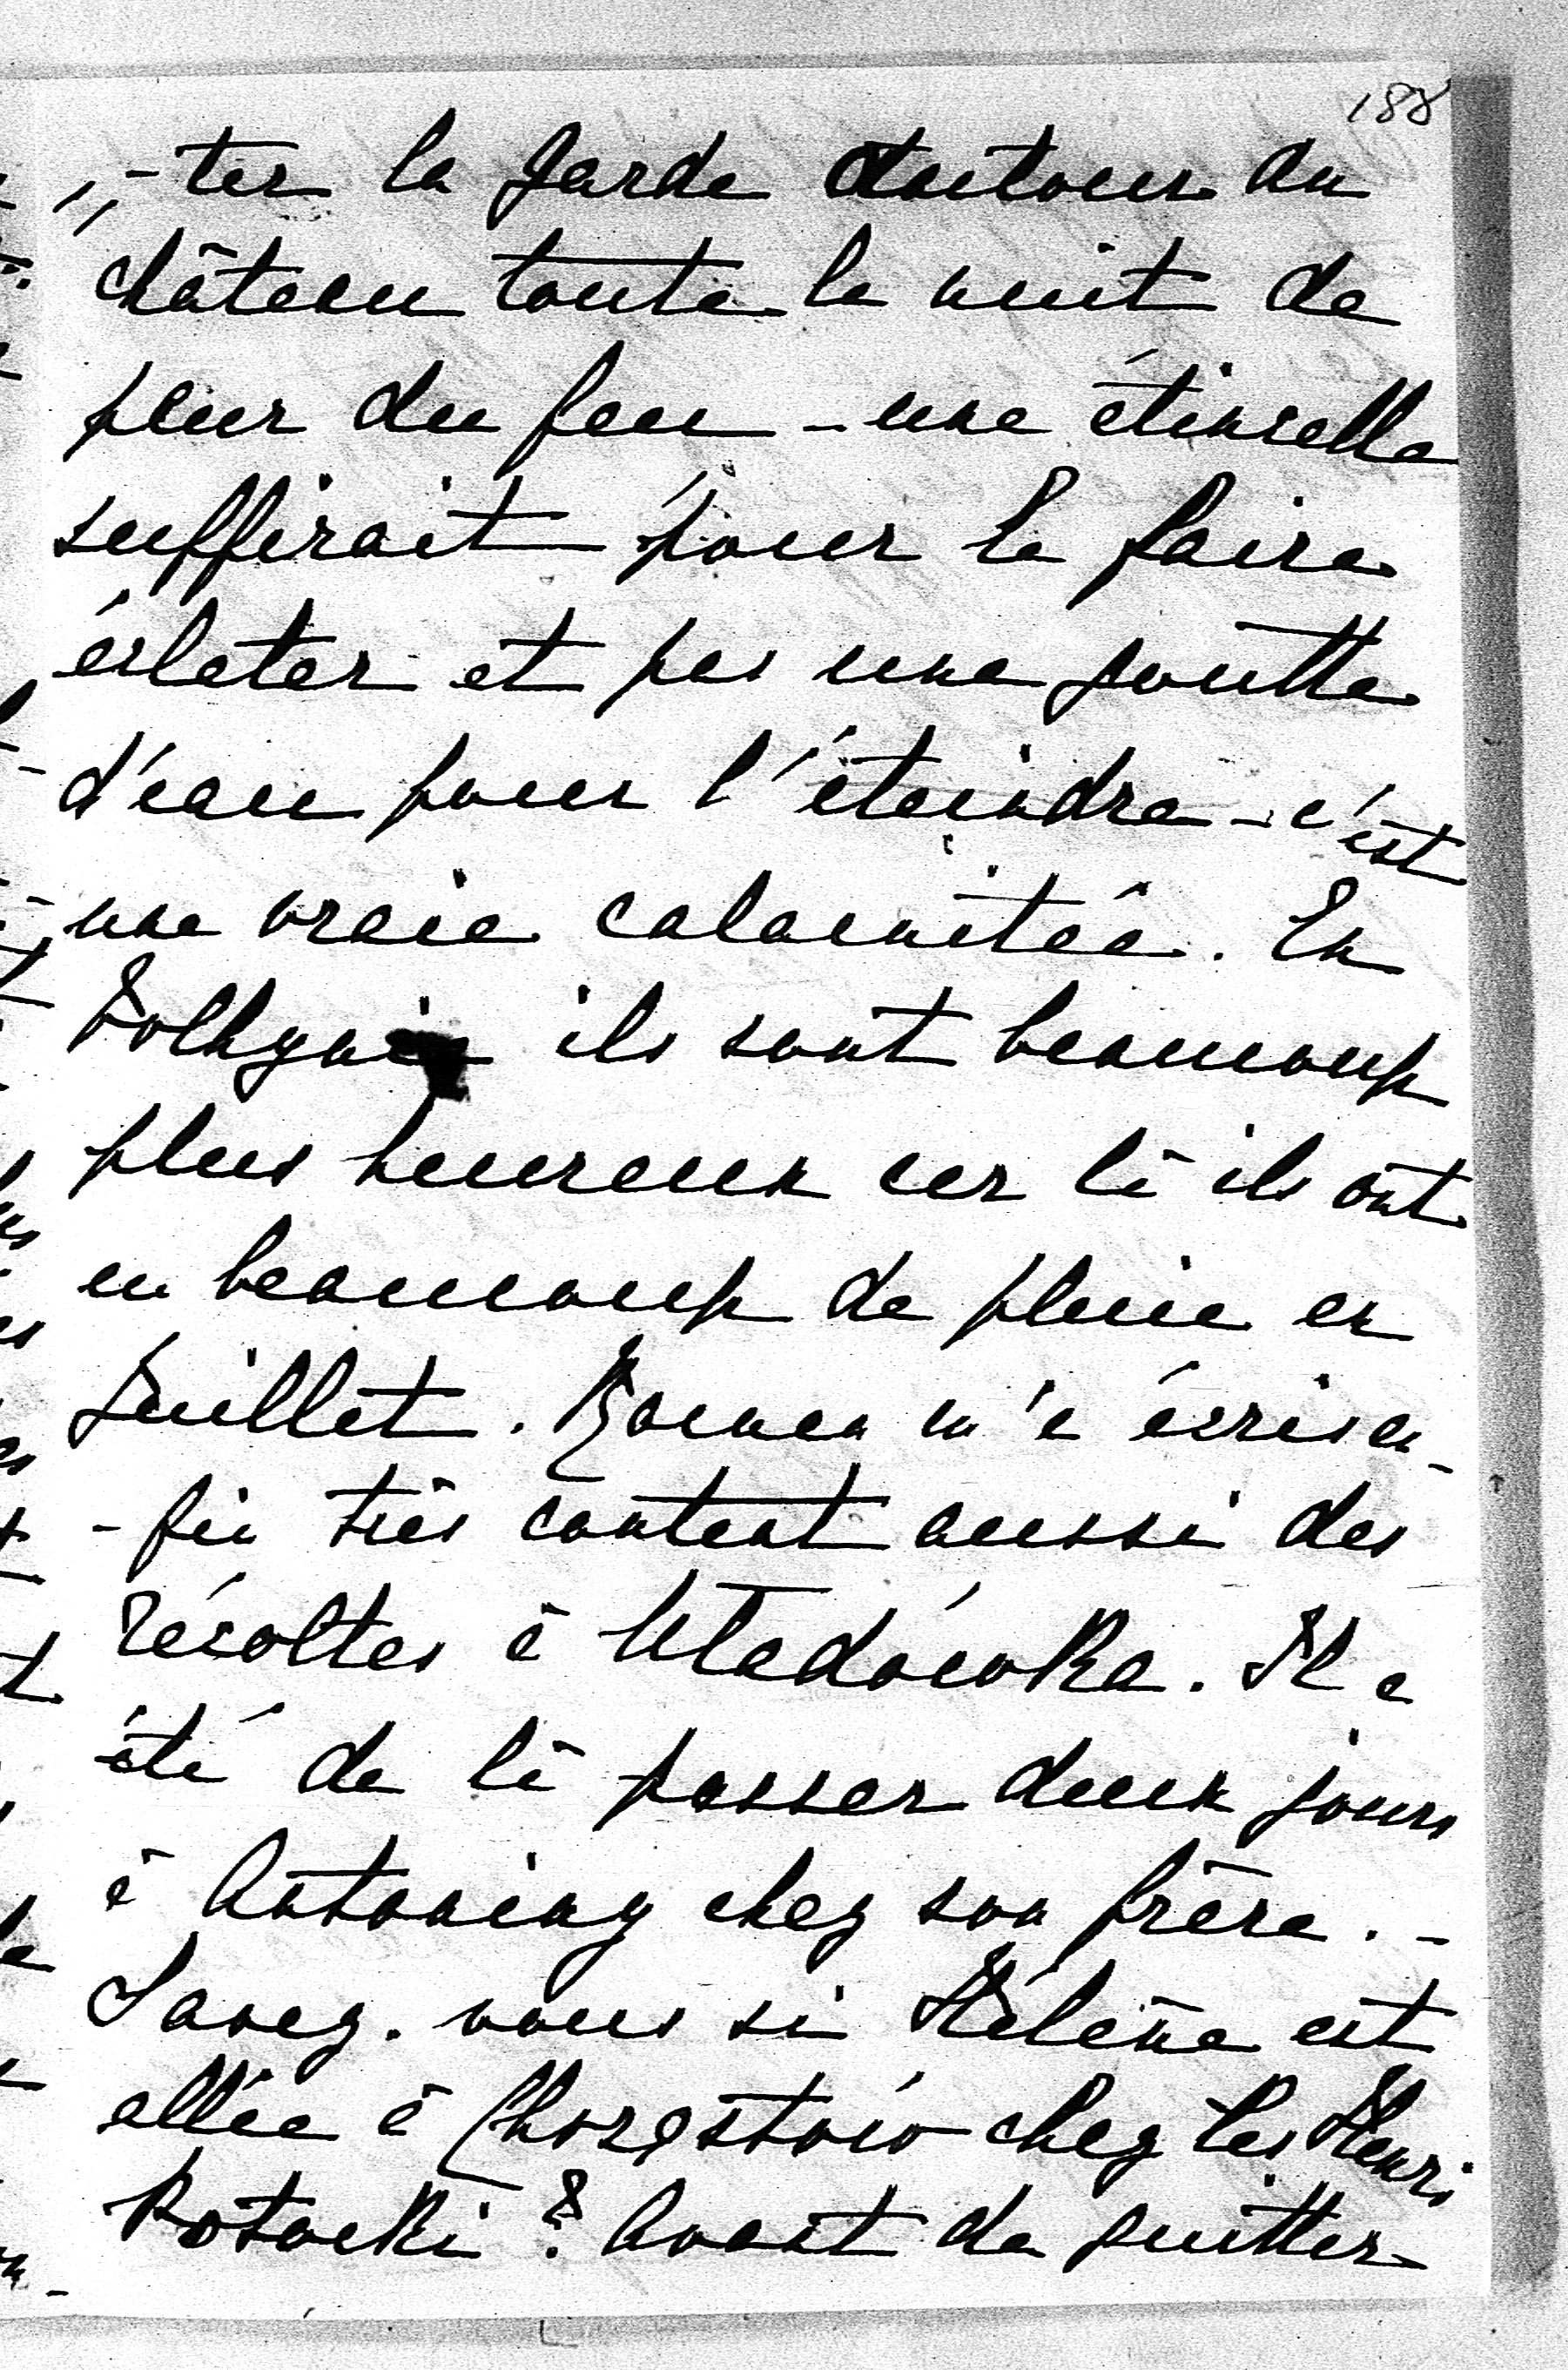 188
-ter la garde autour du
château toute la nuit de
peur du feu – une étincelle
suffirait pour le faire
éclater et pas une goutte
d'eau pour l'éteindre – c'est
une vraie calamitée. En
Volhynie ils sont beaucoup
plus heureux car là ils ont
eu beaucoup de pluie en
Juillet. Roman m'a écris en-
-fin très content aussi des
récoltes à Uładówka. Il a
été de là passer deux jours
à Antoniny chez son frère. –
Savez-vous si Hélène est
allée à Chorostów chez les Henri
Potocki? Avant de quitter